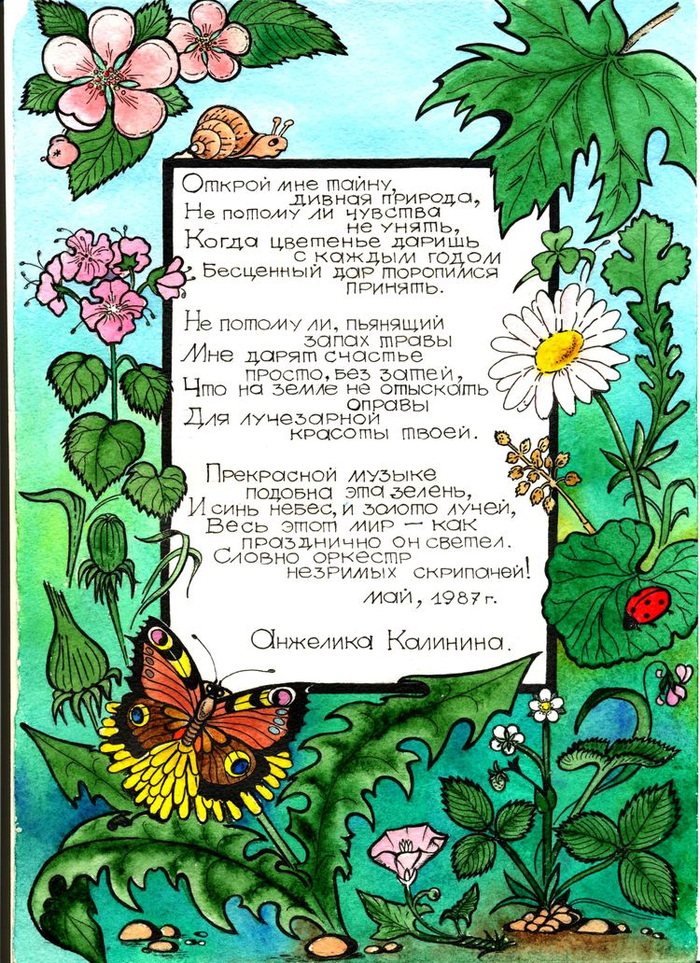 Открой мне тайну,
дивная природа,
Не потому ли чувства
не унять,
Когда цветенье даришь
с каждым годом
Бесценный дар торопимся
принять.
Не потому ли, пьянящий
запах травы
Мне дарят счастье
просто, без затей,
Что на земле не отыскать
оправы
Для лучезарной
красоты твоей.
Прекрасной музыке
подобна эта зелень,
И синь небес, и золото лучей,
Весь этот мир – как
празднично он светел.
Словно оркестр
незримых скрипачей!
май, 1987 г.
Анжелика Калинина.